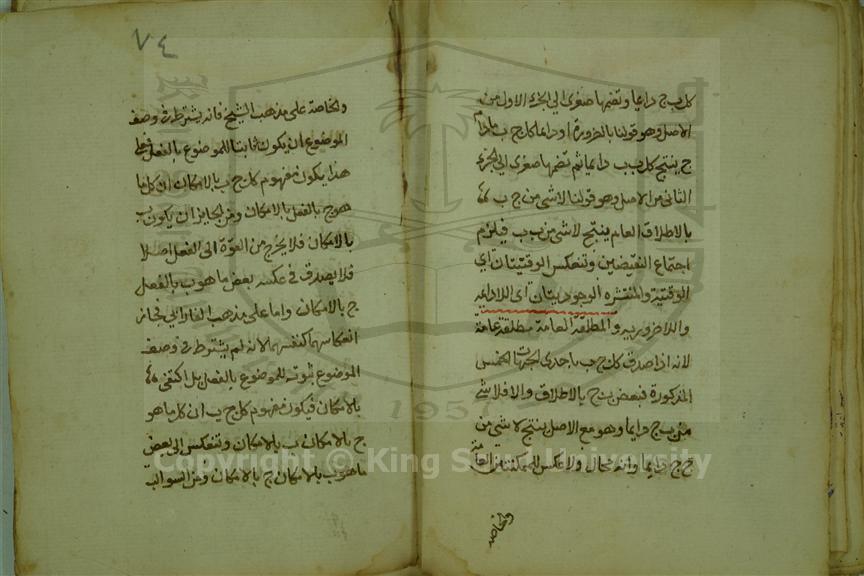 كل ب ج دايما وتضمها صغرى الي الجزء الاول من
الاصل وهو قولنا بالضرورة او دايما كل ج ب مادام
ج ينتج كل ب ب دايما ثم تضمها صغرى الى الجزء
الثاني من الاصل وهو قولنا لا شي من ج ب
بالاطلاق العام ينتج لا شي من ب ب فيلزم
اجتماع النقيضين وتنعكس الوقتيتان اي
الوقتية والمنتشره الوجوديتان اي اللادايمه
واللاضروريه والمطلقة العامة مطلقة عامة
لانه اذا صدق كل ج ب باحدى الجهات الخمس
المذكورة فبعض ب ج بالاطلاق والا فلا شي
من ب ج دايما وهو مع الاصل ينتج لا شي من
ج ج دايما وانه محال ولا عكس للممكنتين العامة
والخاصة
٧٤
والخاصة على مذهب الشيخ فانه يشترط في وصف
الموضوع ان يكون ثابتا للموضوع بالفعل فعلى
هذا يكون مفهوم كل ج ب بالامكان ان كل ما
هو ج بالفعل ب بالامكان ومن الجايز ان يكون ب
بالامكان فلا يخرج من القوة الى الفعل اصلا
فلا يصدق في عكسه بعض ما هو ب بالفعل
ج بالامكان واما على مذهب الفارابي فجاز
انعكاسهما كنفسهما لانه لم يشترط في وصف
الموضوع ثبوته للموضوع بالفعل بل اكتفى
بالامكان فيكون مفهوم كل ج ب ان كل ما هو
ج بالامكان ب بالامكان وتنعكس الى بعض
ما هو ب بالامكان ج بالامكان ومن السوالب
1957
Copyright © King Saud University